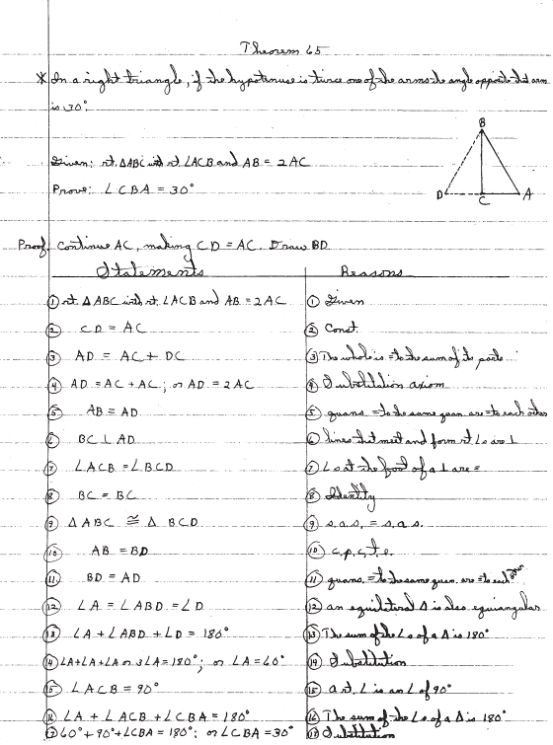 Theorem 65
* In a right triangle, if the hypotenuse is twice one of the arms the angle opposite that arm
is 30°.
B
Given: rt. △ABC with rt ∠ACB and AB = 2AC
Prove: ∠CBA = 30°
D C A
Proof: Continue AC, making CD = AC. Draw BD.
Statements Reasons
① rt. △ABC with rt. ∠ACB and AB = 2AC ① Given
② CD = AC ② Const.
③ AD = AC + DC ③ The whole is = to the sum of its parts
④ AD = AC + AC ; or AD = 2AC ④ Substitution axiom
⑤ AB = AD ⑤ quans. = to the same quan are = to each other
⑥ BC ⊥ AD ⑥ lines that meet and form rt ∠s are ⊥
⑦ ∠ACB = ∠BCD ⑦ ∠s at the foot of a ⊥ are =
⑧ BC = BC ⑧ Identity
⑨ △ABC ≅ △BCD ⑨ s.a.s. = s.a.s.
⑩ AB = BD ⑩ c.p.c.t.e.
⑪ BD = AD ⑪ quans. = to the same quan. are = to each other
⑫ ∠A = ∠ABD = ∠D ⑫ an equilateral △ is also equiangular
⑬ ∠A + ∠ABD + ∠D = 180° ⑬ The sum of the ∠s of a △ is 180°
⑭ ∠A+∠A+∠A or 3∠A = 180° ; or ∠A = 60° ⑭ Substitution
⑮ ∠ACB = 90° ⑮ a rt. ∠ is an ∠ of 90°
⑯ ∠A + ∠ACB + ∠CBA = 180° ⑯ The sum of the ∠s of a △ is 180°
⑰ 60° + 90° + ∠CBA = 180° ; or ∠CBA = 30° ⑰ Substitution